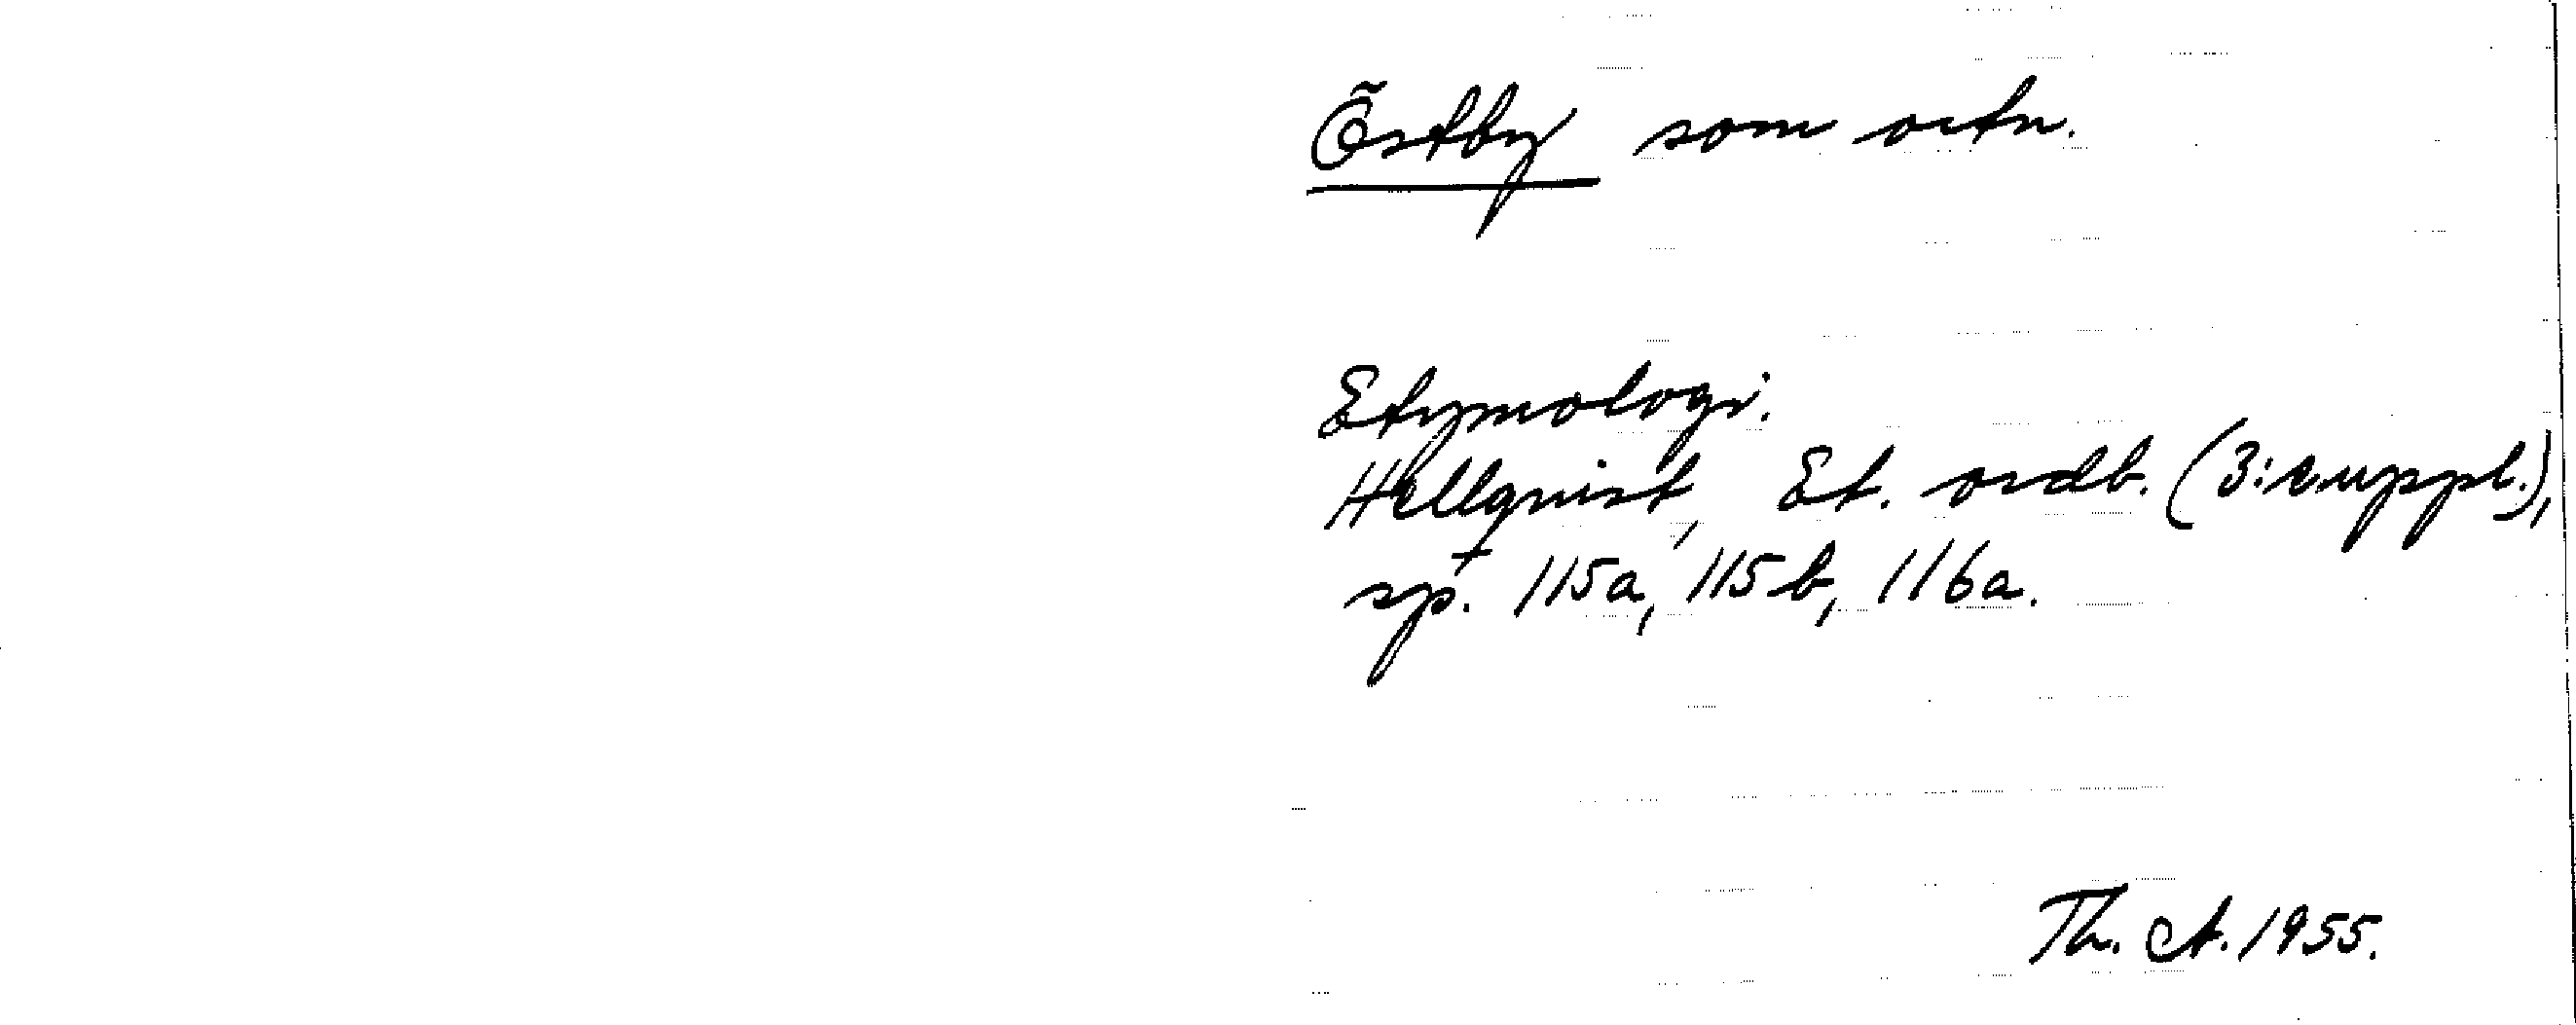 Östby som ortn.
Etymologi.
Hellquist, Et. ordb. (3:e uppl.),
sp. 115a, 115b, 116a.
Th. A. 1955.